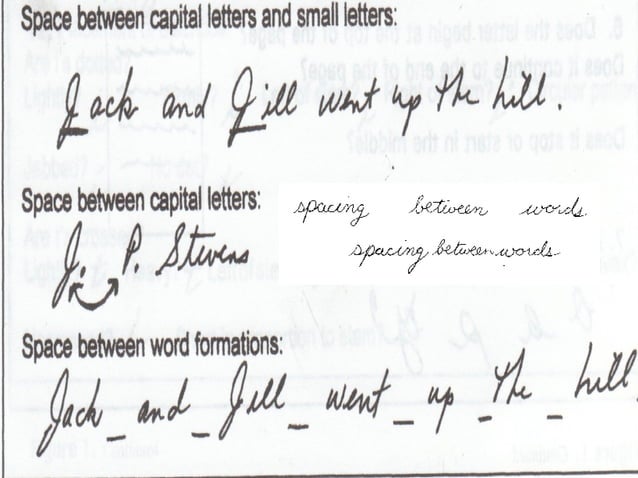 Space between capital letters and small letters:
Jack and Jill went up the hill.
Space between capital letters:
spacing between words.
J. P. Stevens
spacing between words
Space between word formations:
Jack _ and _ Jill _ went _ up _ the _ hill.